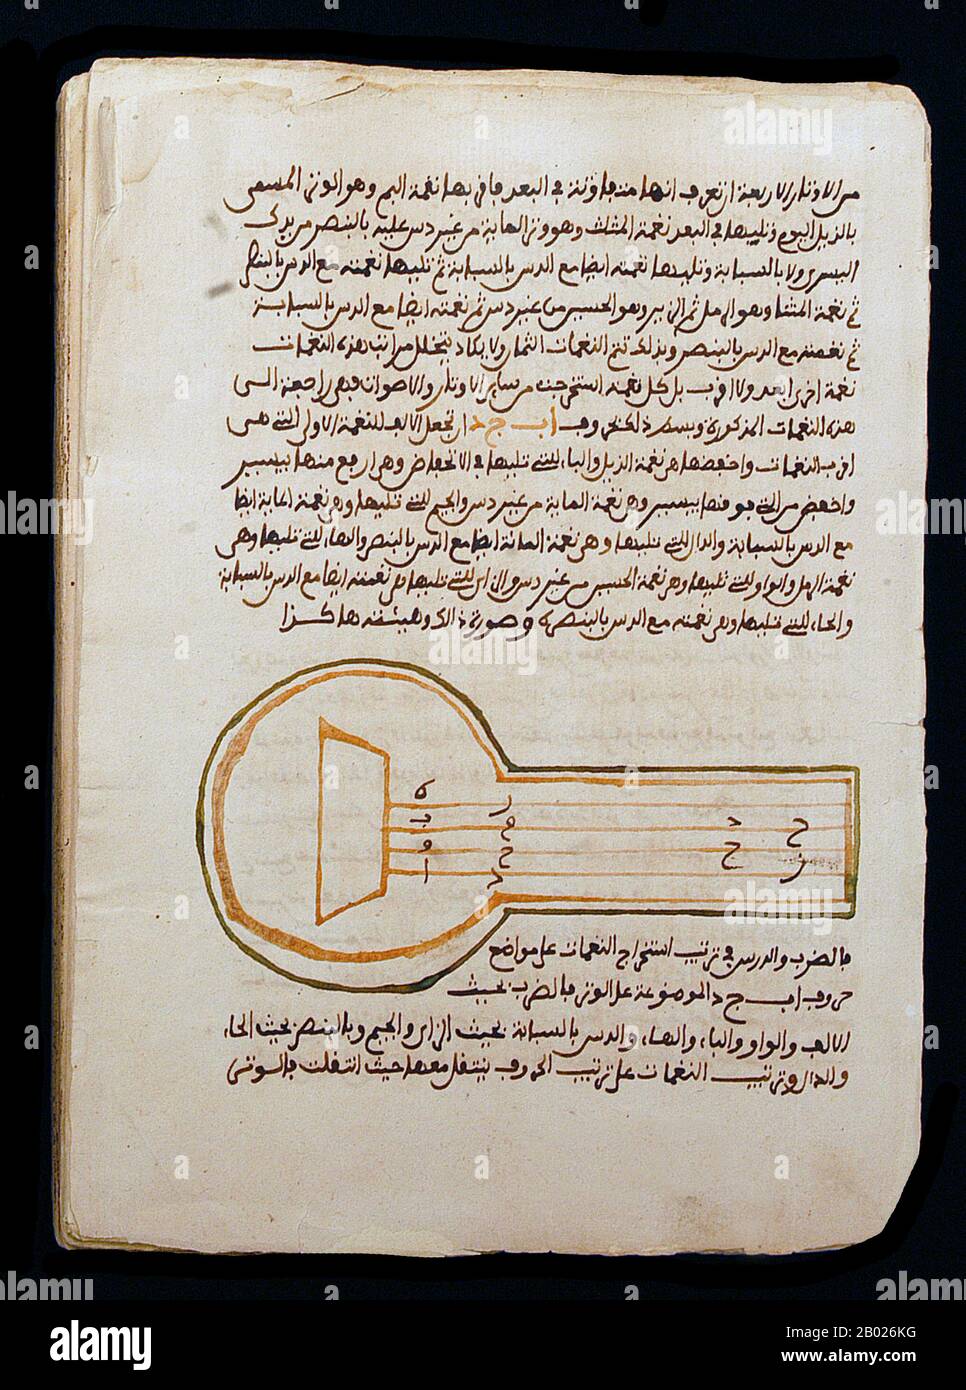 من الاوتار الاربعة ان تعرف انها متفاوتة في البعد فاقربها نغمة البم وهو الوتر المسمى
بالذيل اليوم وتليها في البعد نغمة المثلث وهو وتر الماية من غير دس عليه بالبنصر من يدك
اليسرى ولا بالسبابة وتليها نغمته ايضا مع الدس بالسبابة ثم تليها نغمته مع الدس بالبنصر
ثم نغمة المثنا وهو الرمل ثم الزير وهو الحسين من غير دس ثم نغمته ايضا مع الدس بالسبابة
ثم نغمته مع الدس بالبنصر وبذلك تتم النغمات الثمان ولا يكاد يتخلل مراتب هذه النغمات
نغمة اخرى ابعد ولا اقرب بل كل نغمة استخرجت من ساير الاوتار والاصوات فهي راجعة الى
هذه النغمات المذكورة وبسط ذلك بحروف ا ب ج د ان تجعل الالف للنغمة الاولى التي هي
اقرب النغمات واخفضها هي نغمة الذيل والباء للتي تليها في الانخفاض وهي ارفع منها بيسير
واخفض من التي فوقها بيسير وهي نغمة الماية من غير دس والجيم للتي تليها وهي نغمة الماية ايضا
مع الدس بالسبابة والدال للتي تليها وهي نغمة الماية ايضا مع الدس بالبنصر والهاء للتي تليها وهي
نغمة الرمل والواو للتي تليها وهي نغمة الحسين من غير دس والزاي للتي تليها وهي نغمته ايضا مع الدس بالسبابة
والحاء للتي تليها وهي نغمته مع الدس بالبنصر وصورة ذلك وهيئته هكذا
ه
ب
و
ا
د
ج
ح
ز
بالضرب والدس في ترتيب استخراج النغمات على مواضع
حروف ا ب ج د الموضوعة على الوتر بالضرب بحيث
الالف والواو والباء والهاء والدس بالسبابة بحيث الزاي والجيم وبالبنصر بحيث الحاء
والدال وترتيب النغمات على ترتيب الحروف ينتقل معها حيث انتقلت بالوتر
alamy
a
Image ID: 2B026KG
www.alamy.com